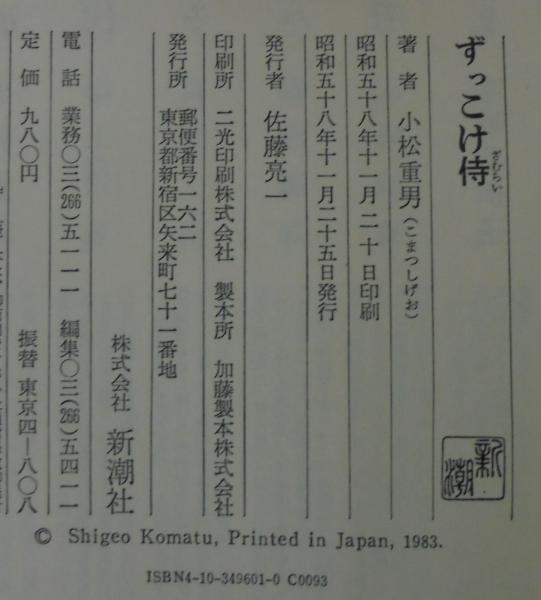 ずっこけ侍
ざむらい
著者 小松重男(こまつしげお)
昭和五十八年十一月二十日印刷
昭和五十八年十一月二十五日発行
発行者 佐藤亮一
印刷所 二光印刷株式会社 製本所 加藤製本株式会社
発行所 郵便番号一六二
東京都新宿区矢来町七十一番地
株式会社 新潮社
電話 業務〇三(266)五一一一 編集〇三(266)五四一一
定価 九八〇円 振替 東京四―八〇八
新潮
© Shigeo Komatu, Printed in Japan, 1983.
ISBN4-10-349601-0 C0093